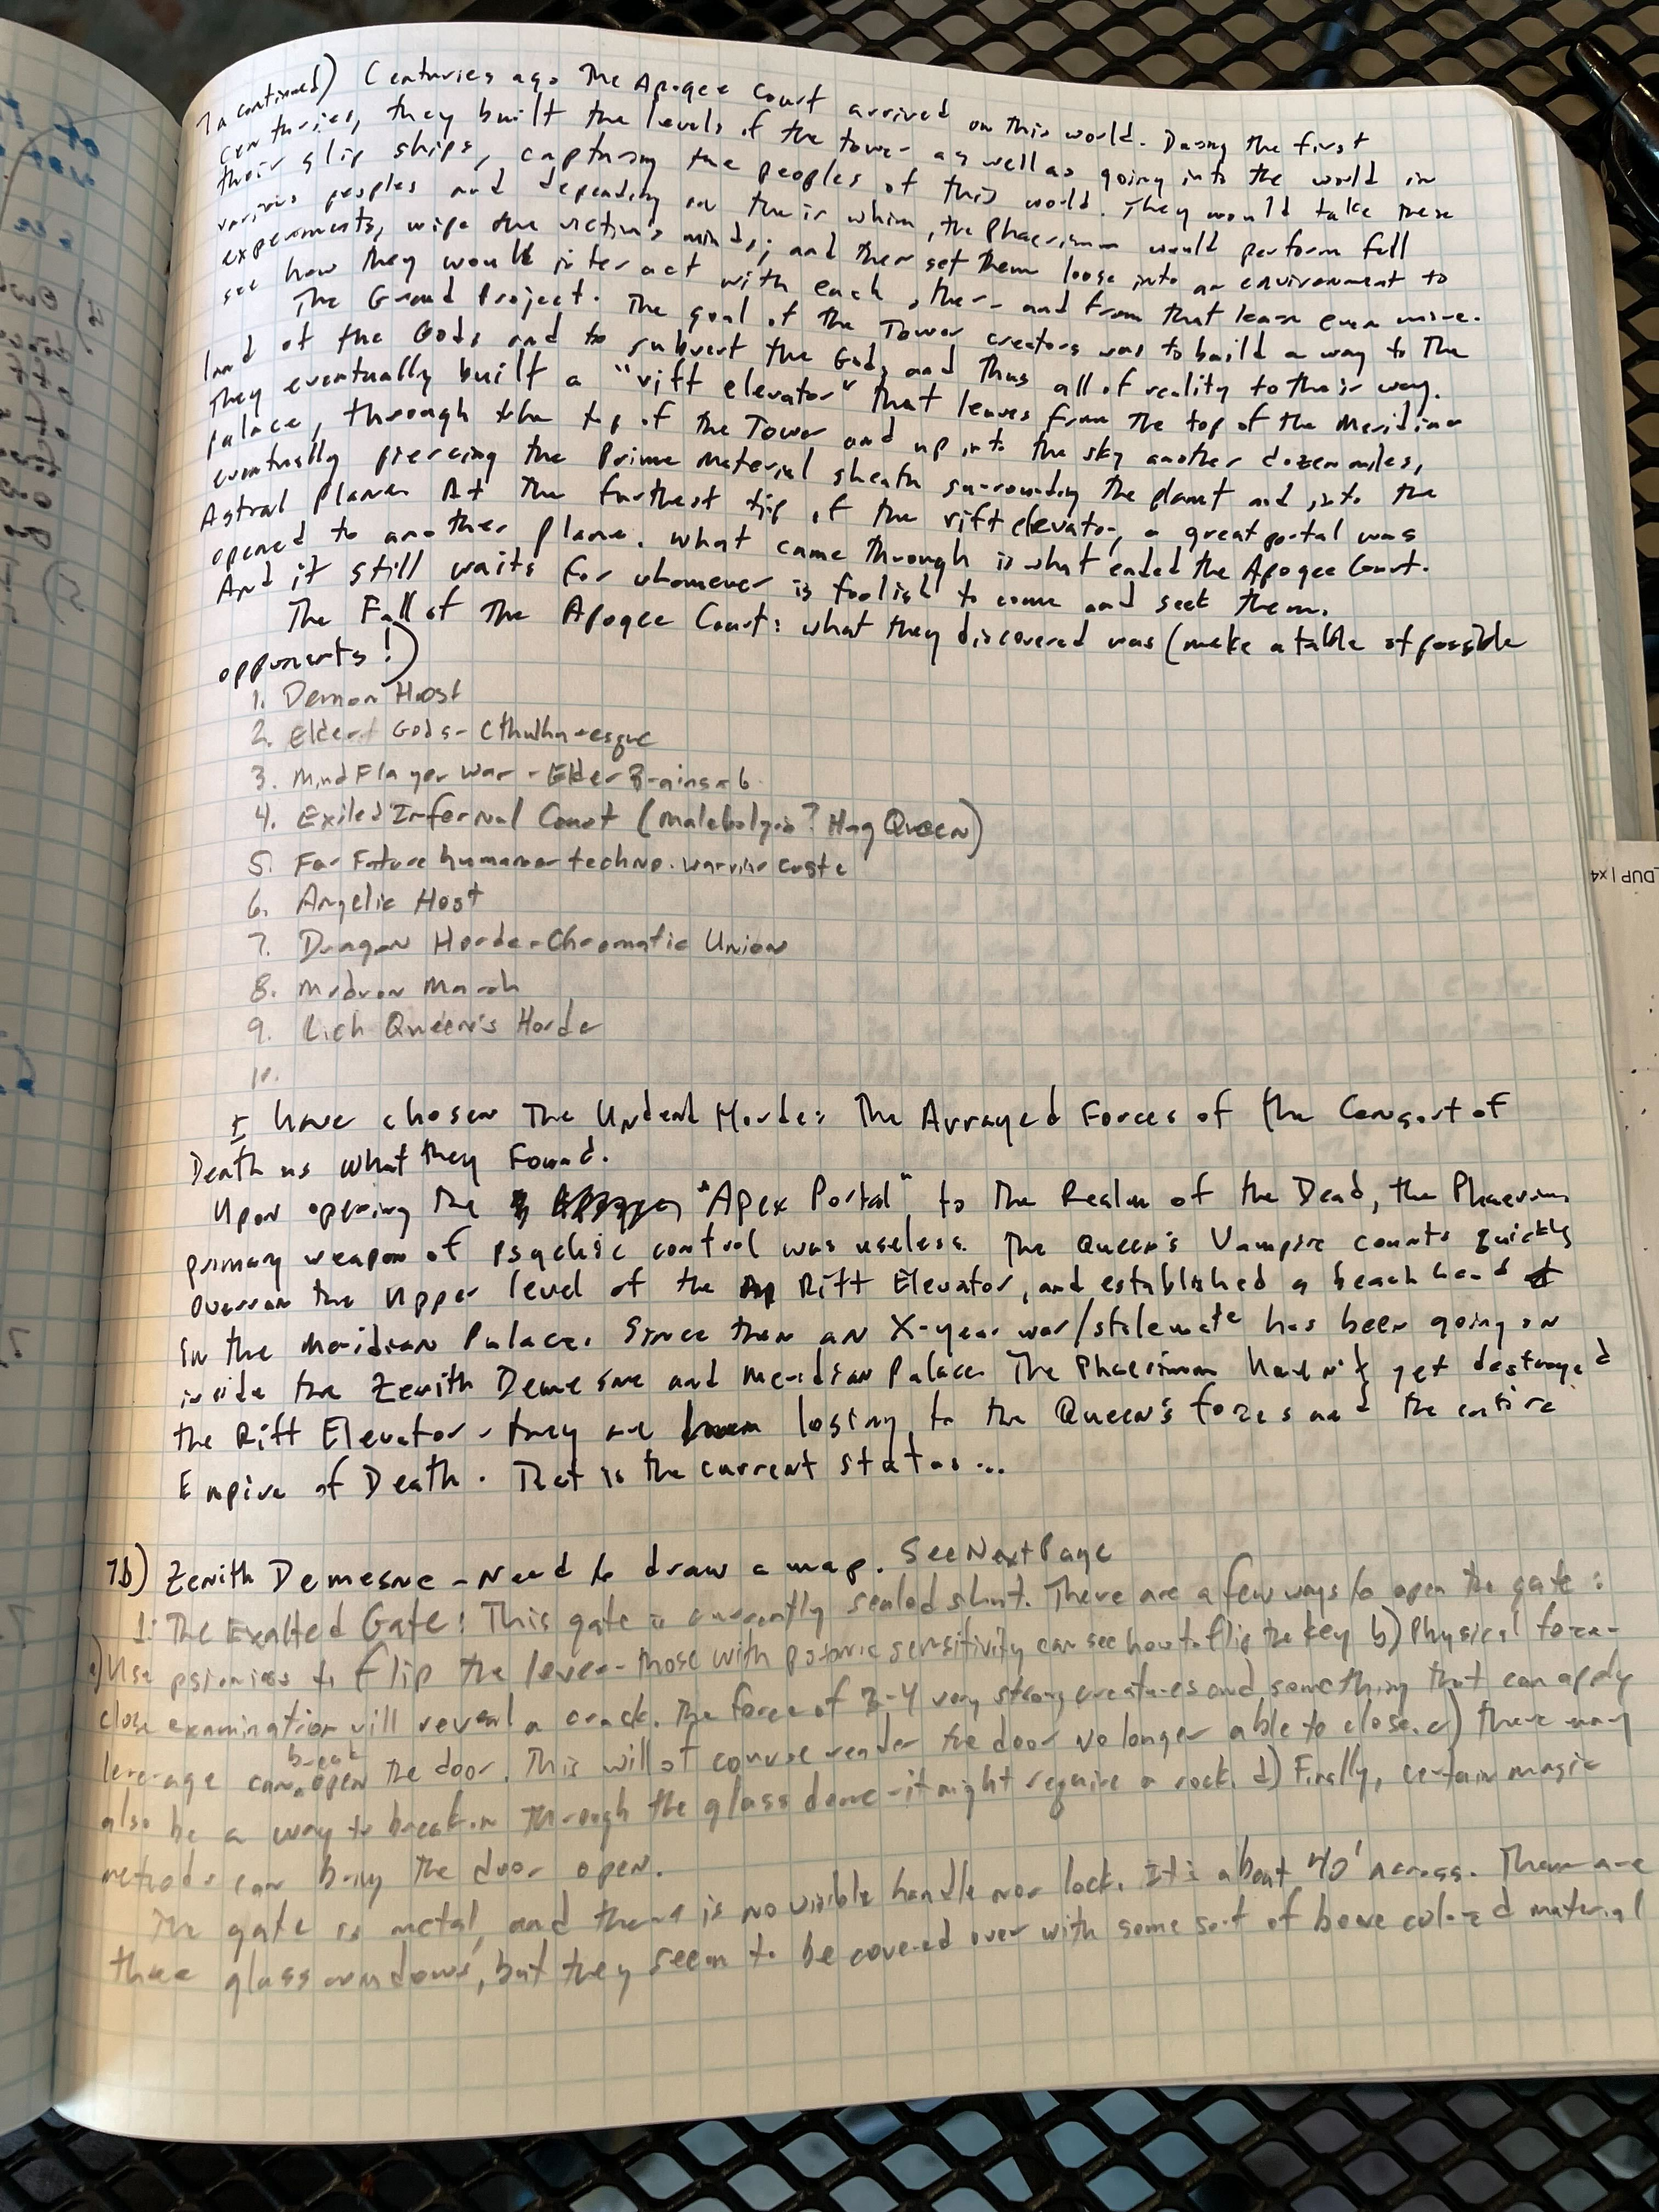 7a continued) Centuries ago The Apogee Court arrived on this world. During the first
centuries, they built the levels of the tower as well as going into the world in
their slip ships, capturing the peoples of this world. They would take these
various peoples and depending on their whim, the Phaerimm would perform fell
experiments, wipe the victim's minds; and then set them loose into an environment to
see how they would interact with each other - and from that learn even more.
The Grand Project. The goal of the Tower creators was to build a way to The
land of the Gods and to subvert the Gods and Thus all of reality to their way.
They eventually built a "rift elevator" that leaves from the top of the Meridian
palace, through the top of the Tower and up into the sky another dozen miles,
eventually piercing the Prime Material sheath surrounding the planet and into the
Astral Plane. At the furthest tip of the rift elevator, a great portal was
opened to another plane. What came through is what ended the Apogee Court.
And it still waits for whomever is foolish to come and seek them.
The Fall of The Apogee Court: what they discovered was (make a table of possible
opponents!)
1. Demon Host
2. Elder Gods - Cthulhu-esque
3. Mind Flayer War - Elder Brains - 6
4. Exiled Infernal Court (Malebolgia? Hag Queen)
5. Far Future human or techno. warrior caste
6. Angelic Host
7. Dragon Horde - Chromatic Union
8. Modron March
9. Lich Queen's Horde
10.
I have chosen The Undead Horde: The Arrayed Forces of the Consort of
Death as what they Found.
Upon opening the "Apex Portal" to The Realm of the Dead, the Phaerimm
primary weapon of psychic control was useless. The Queen's Vampire counts quickly
overran the upper level of the Rift Elevator, and established a beach head
in the Meridian Palace. Since then an X-year war/stalemate has been going on
inside the Zenith Demesne and Meridian Palace. The Phaerimm haven't yet destroyed
the Rift Elevator - they are losing to the Queen's forces and the entire
Empire of Death. That is the current status...
7b) Zenith Demesne - Need to draw a map. See Next Page
1: The Exalted Gate: This gate is currently sealed shut. There are a few ways to open the gate:
a) Use psionics to flip the lever - those with psionic sensitivity can see how to flip the key b) Physical force -
close examination will reveal a crack. The force of 3-4 very strong creatures and something that can apply
leverage can break open the door. This will of course render the door no longer able to close. c) there may
also be a way to break in through the glass dome - it might require a rock. d) Finally, certain magic
methods can bring the door open.
The gate is metal, and there is no visible handle nor lock. It's about 40' across. There are
three glass windows, but they seem to be covered over with some sort of bone colored material
LDUP | x4